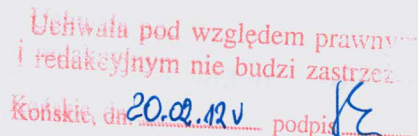 Uchwała pod względem prawny
i redakcyjnym nie budzi zastrzeż
Końskie, dn. 20.02.12r podpis